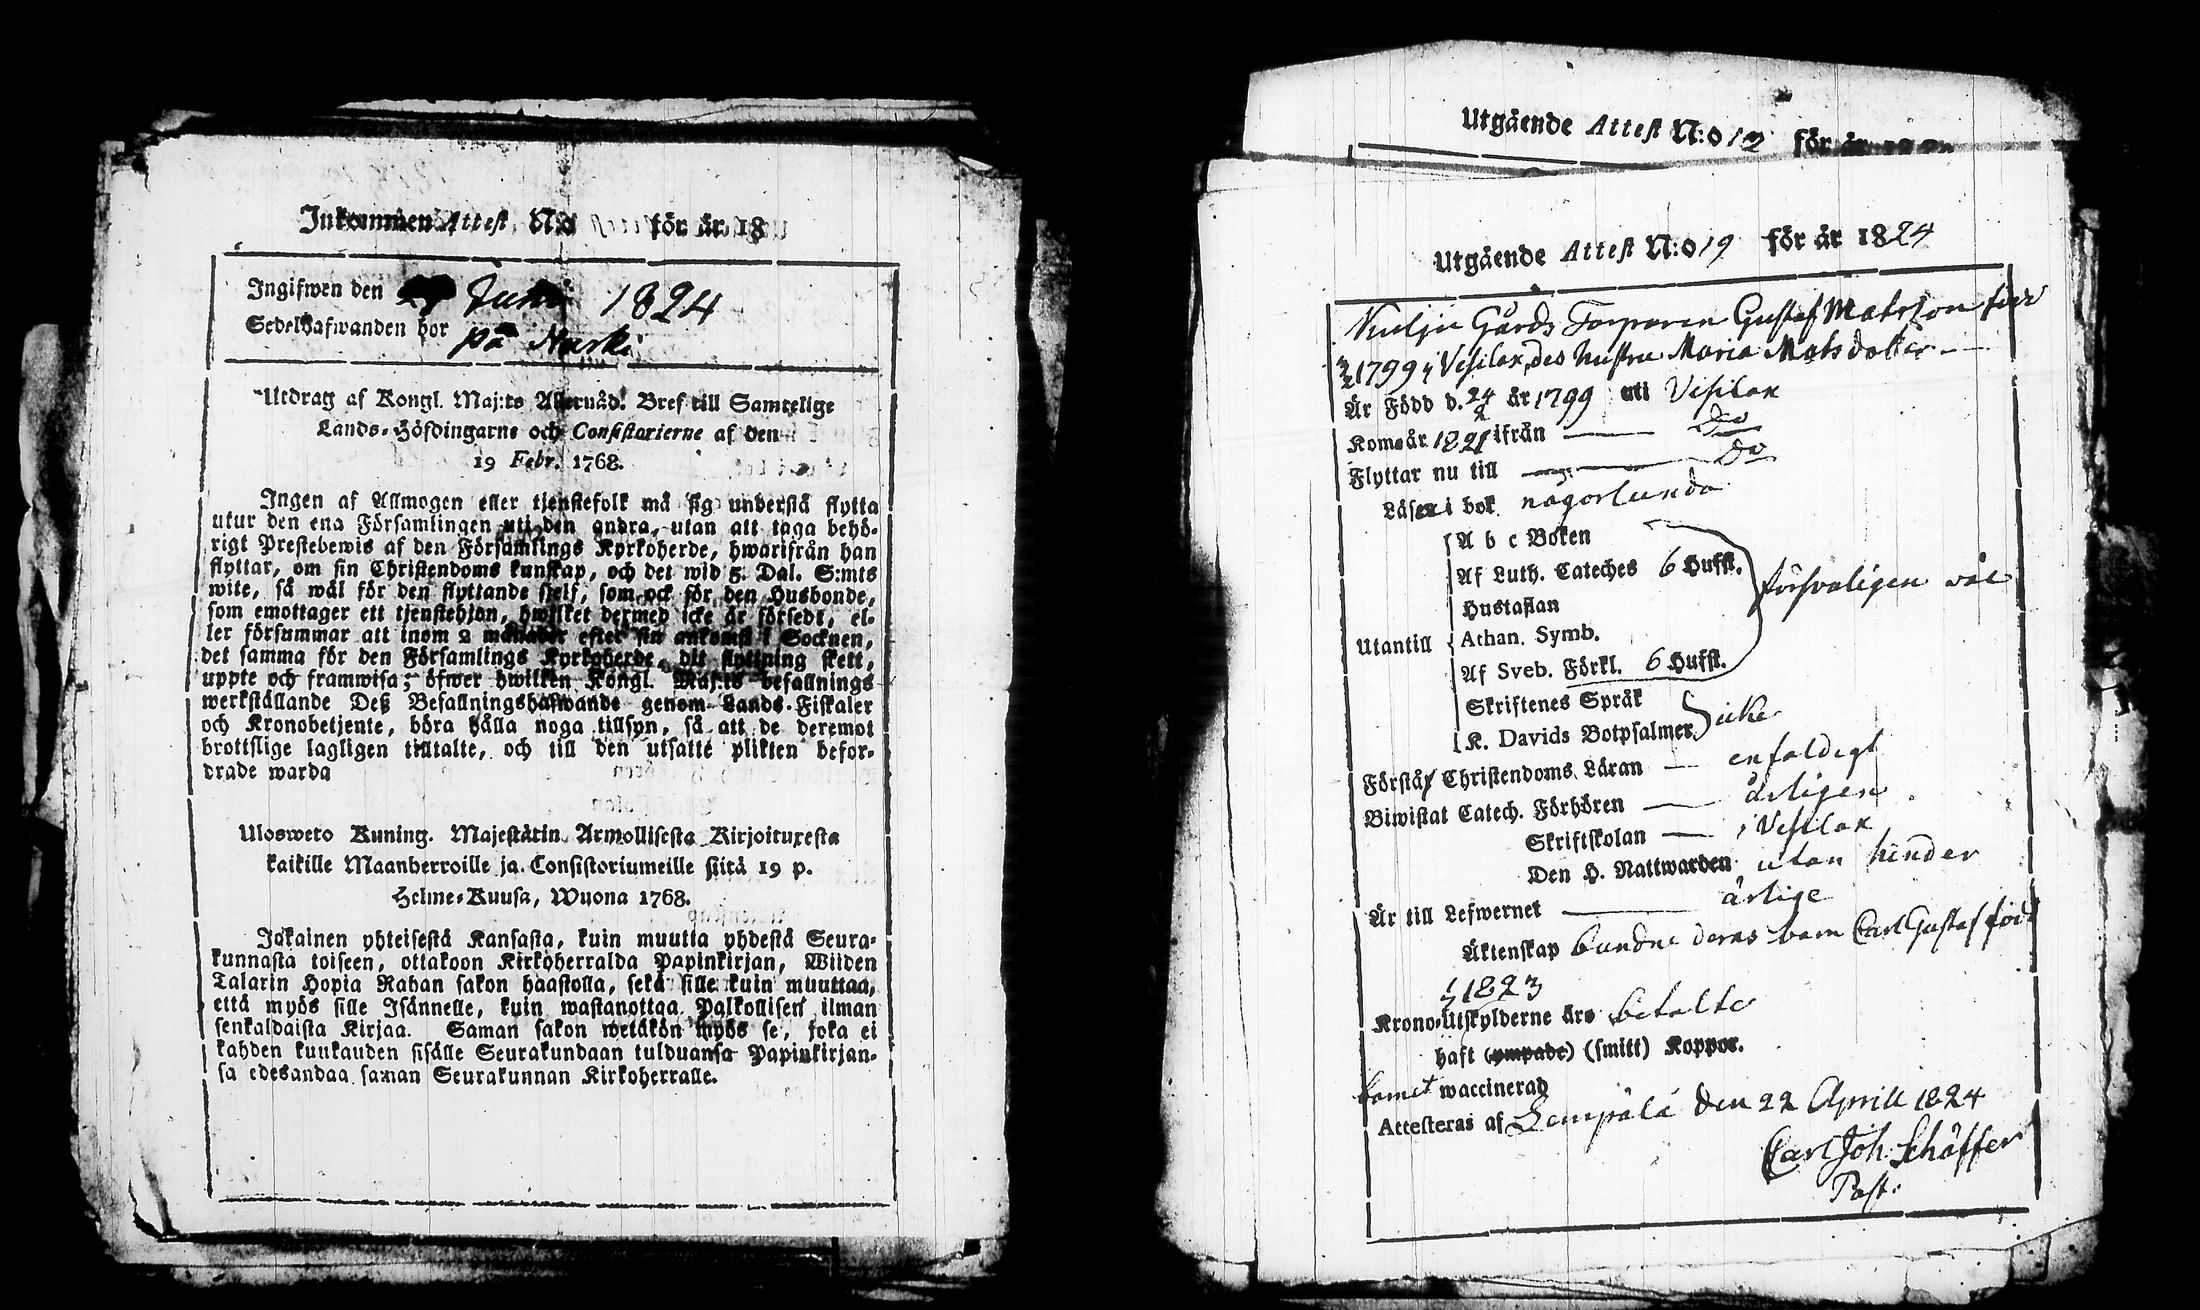 Inkommen Attest N:o för år 18
Ingifwen den 27 Juni 1824
Sedelhafwanden bor på Narki
Utdrag af Kongl. Maj:ts Allernåd. Bref till Samtelige
Lands-Höfdingarne och Consistorierne af den
19 Febr. 1768.
Ingen af Allmogen eller tjenstefolk må sig understå flytta
utur den ena Församlingen uti den andra, utan att taga behö-
rigt Prestebewis af den Församlings Kyrkoherde, hwarifrån han
flyttar, om sin Christendoms kunskap, och det wid 5. Dal. S:mts
wite, så wäl för den flyttande sjelf, som ock för den Husbonde,
som emottager ett tjenstehjon, hwilket dermed icke är försedt, el-
ler försummar att inom 2 månader efter sin ankomst i Socknen,
det samma för den Församlings Kyrkoherde, dit flyttning skett,
uppte och framwisa; öfwer hwilken Kongl. Maj:ts befallnings
werkställande Deß Befallningshafwande genom Lands-Fiskaler
och Kronobetjente, böra hålla noga tillsyn, så att de deremot
brottslige lagligen tilltalte, och till den utsatte plikten befor-
drade warda
Ulosweto Kuning. Majestätin Armollisesta Kirjoituxesta
kaikille Maanherroille ja Consistoriumeille siitä 19 p.
Helme-Kuusa, Wuona 1768.
Jokainen yhteisestä Kansasta, kuin muutta yhdestä Seura-
kunnasta toiseen, ottakoon Kirkoherralda Papinkirjan, Wiiden
Talarin Hopia Rahan sakon haastolla, sekä sille kuin muuttaa,
että myös sille Isännelle, kuin wastanottaa Palkollisen ilman
senkaldaista Kirjaa. Saman sakon wetäkön myös se, joka ei
kahden kuukauden sisälle Seurakundaan tulduansa Papinkirjan-
sa edesandaa saman Seurakunnan Kirkoherralle.
Utgående Attest N:o 12 för år
Utgående Attest N:o 19 för år 1824
Gårds Torparen Gustaf Matsson född
1799 i Vesilax, des hustru Maria Matsdotter
Är Född d. 24/2 år 1799 uti Vesilax
Kom år 1821 ifrån Do
Flyttar nu till Do
Läser i bok någorlunda
A b c Boken
Af Luth. Cateches 6 Hufst.
försvaligen väl
Hustaflan
Utantill Athan. Symb.
Af Sveb. Förkl. 6 Hufst.
Skriftenes Språk
K. Davids Botpsalmer icke
Förstår Christendoms Läran enfaldigt
Biwistat Catech. Förhören årligen
Skriftskolan i Vesilax
Den H. Nattwarden utan hinder
Är till Lefwernet ärlige
Äktenskap bundne deras barn Carl Gustaf född
1823
Krono-Utskylderne äro betalte
haft (ympade) (smitt) Koppor.
barnet waccinerad
Attesteras af Lempälä den 22 Aprill 1824
Carl Joh. Schäffer
Past: